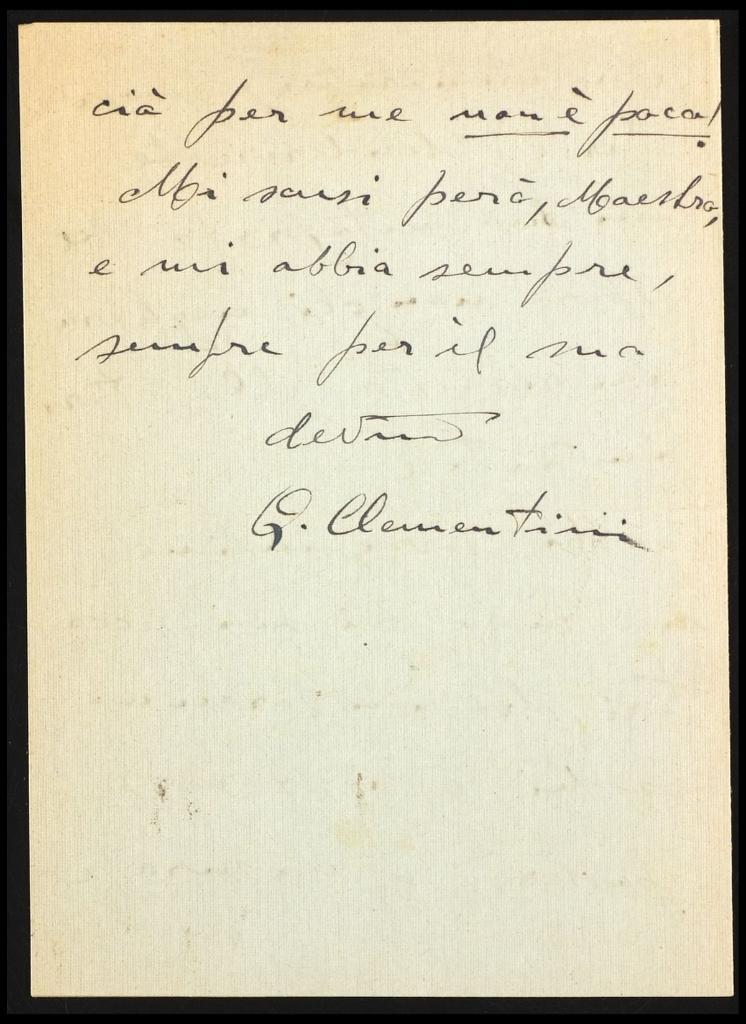 ciò per me non è poco!
Mi scusi però, Maestro,
e mi abbia sempre,
sempre per il suo
devmo
G. Clementini